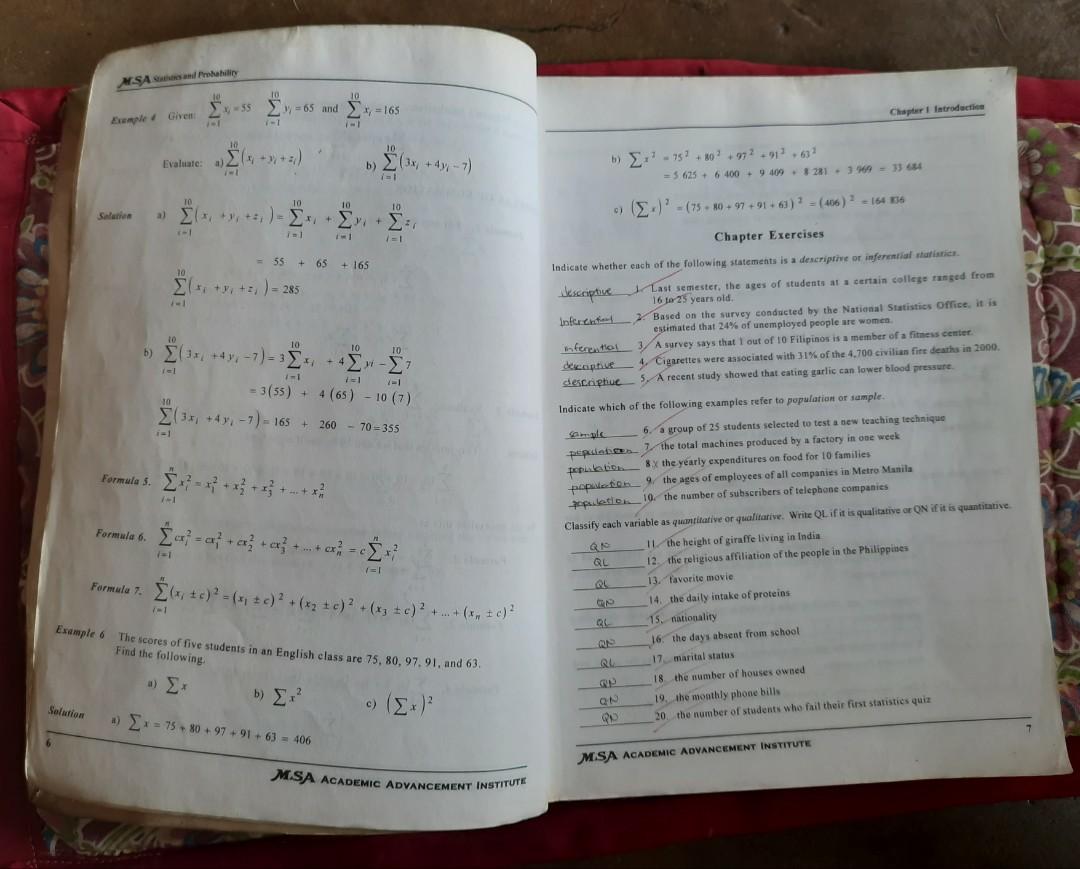 MSA Statistics and Probability
Example 4 Given: \sum_{i=1}^{10} x_i = 55 \sum_{i=1}^{10} y_i = 65 and \sum_{i=1}^{10} x_i = 165
Evaluate: a) \sum_{i=1}^{10} (x_i + y_i + z_i) b) \sum_{i=1}^{10} (3x_i + 4y_i - 7)
Solution a) \sum_{i=1}^{10} (x_i + y_i + z_i) = \sum_{i=1}^{10} x_i + \sum_{i=1}^{10} y_i + \sum_{i=1}^{10} z_i
= 55 + 65 + 165
\sum_{i=1}^{10} (x_i + y_i + z_i) = 285
b) \sum_{i=1}^{10} (3x_i + 4y_i - 7) = 3 \sum_{i=1}^{10} x_i + 4 \sum_{i=1}^{10} yi - \sum_{i=1}^{10} 7
= 3(55) + 4(65) - 10(7)
\sum_{i=1}^{10} (3x_i + 4y_i - 7) = 165 + 260 - 70 = 355
Formula 5. \sum_{i=1}^{n} x_i^2 = x_1^2 + x_2^2 + x_3^2 + ... + x_n^2
Formula 6. \sum_{i=1}^{n} cx_i^2 = cx_1^2 + cx_2^2 + cx_3^2 + ... + cx_n^2 = c \sum_{i=1}^{n} x_i^2
Formula 7. \sum_{i=1}^{n} (x_i ± c)^2 = (x_1 ± c)^2 + (x_2 ± c)^2 + (x_3 ± c)^2 + ... + (x_n ± c)^2
Example 6 The scores of five students in an English class are 75, 80, 97, 91, and 63.
Find the following.
a) \sum x b) \sum x^2 c) (\sum x)^2
Solution a) \sum x = 75 + 80 + 97 + 91 + 63 = 406
6
MSA ACADEMIC ADVANCEMENT INSTITUTE
Chapter 1 Introduction
b) \sum x^2 = 75^2 + 80^2 + 97^2 + 91^2 + 63^2
= 5 625 + 6 400 + 9 409 + 8 281 + 3 969 = 33 684
c) (\sum x)^2 = (75 + 80 + 97 + 91 + 63)^2 = (406)^2 = 164 836
Chapter Exercises
Indicate whether each of the following statements is a descriptive or inferential statistics.
descriptive 1. Last semester, the ages of students at a certain college ranged from
16 to 25 years old.
Inferential 2. Based on the survey conducted by the National Statistics Office, it is
estimated that 24% of unemployed people are women.
inferential 3. A survey says that 1 out of 10 Filipinos is a member of a fitness center.
descriptive 4. Cigarettes were associated with 31% of the 4,700 civilian fire deaths in 2000.
descriptive 5. A recent study showed that eating garlic can lower blood pressure.
Indicate which of the following examples refer to population or sample.
sample 6. a group of 25 students selected to test a new teaching technique
population 7. the total machines produced by a factory in one week
population 8. the yearly expenditures on food for 10 families
population 9. the ages of employees of all companies in Metro Manila
population 10. the number of subscribers of telephone companies
Classify each variable as quantitative or qualitative. Write QL if it is qualitative or QN if it is quantitative.
QN 11. the height of giraffe living in India
QL 12. the religious affiliation of the people in the Philippines
QL 13. favorite movie
QN 14. the daily intake of proteins
QL 15. nationality
QN 16. the days absent from school
QL 17. marital status
QN 18. the number of houses owned
QN 19. the monthly phone bills
QN 20. the number of students who fail their first statistics quiz
7
MSA ACADEMIC ADVANCEMENT INSTITUTE